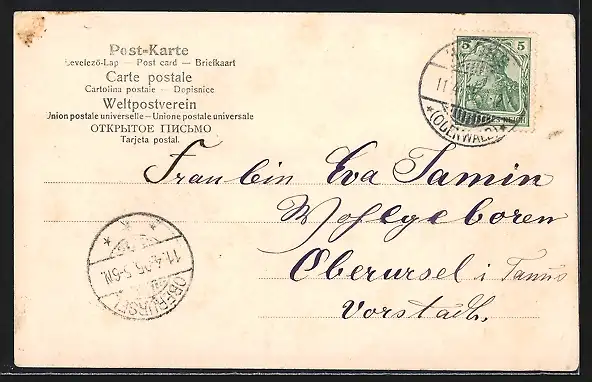 Post-Karte
Levelező-Lap — Post card — Briefkaart
Carte postale
Cartolina postale — Dopisnice
Weltpostverein
Union postale universelle — Unione postale universale
ОТКРЫТОЕ ПІСЬМО
Tarjeta postal.
5 5
11.4
*(ODENWALD)*
Fraulein Eva Tamin
Wohlgeboren
Oberursel i Taunus
Vorstadt.
11.4.05.5-6N.
OBERURSEL